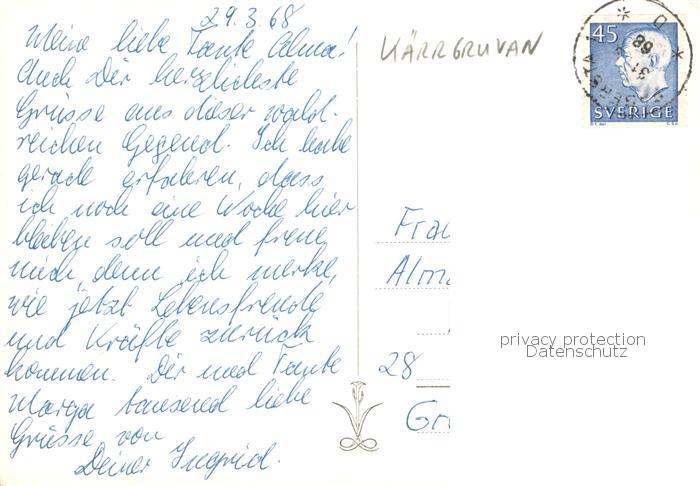 29.3.68
Meine liebe Tante Alma!
Auch Dir herzlichste
Grüsse aus dieser wald-
reichen Gegend. Ich habe
gerade erfahren, dass
ich noch eine Woche hier
bleiben soll und freue
mich, denn ich merke,
wie jetzt Lebensfreude
und Kräfte zurück
kommen. Dir und Tante
Marga tausend liebe
Grüsse von
Deiner Ingrid.
KÄRRGRUVAN
45
SVERIGE
31
68
Frau
Alma
28
Gr
privacy protection
Datenschutz